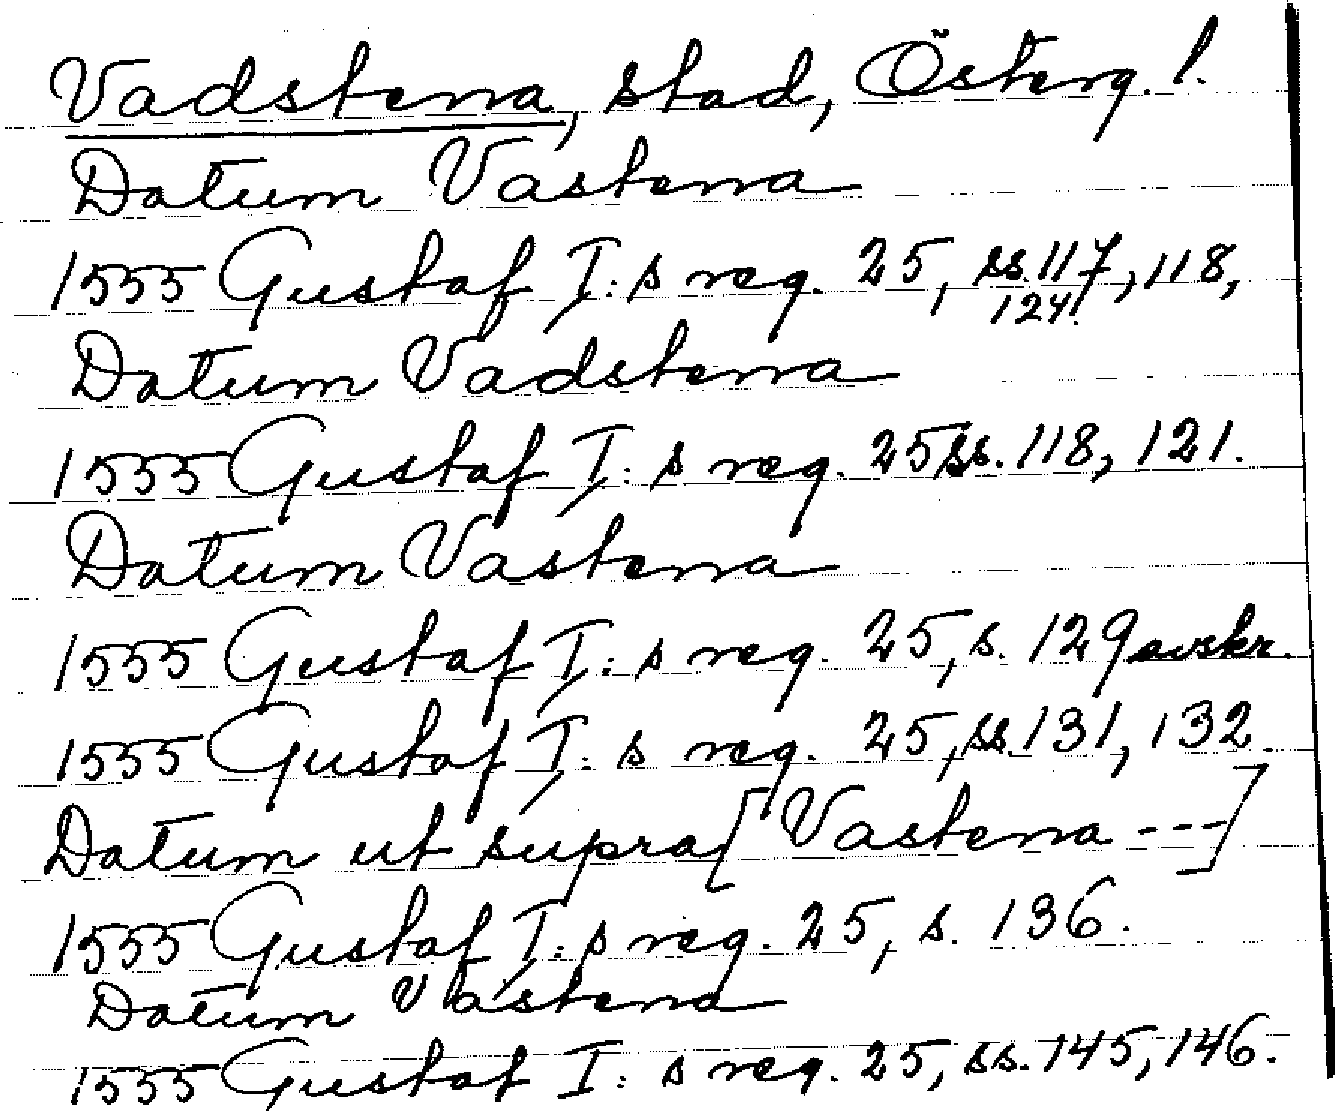 Vadstena, stad, Österg. l.
Datum Vastena
1555 Gustaf I:s reg. 25, ss. 117, 118,
124.
Datum Vadstena
1555 Gustaf I:s reg. 25, ss. 118, 121.
Datum Vastena
1555 Gustaf I:s reg. 25, s. 129 avskr.
1555 Gustaf I:s reg. 25, ss. 131, 132.
Datum ut supra [Vastena ---]
1555 Gustaf I:s reg. 25, s. 136.
Datum Vastena
1555 Gustaf I:s reg. 25, ss. 145, 146.